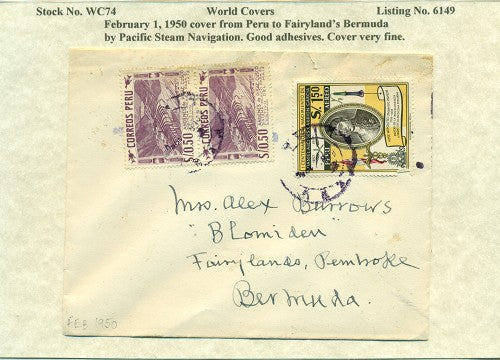 Stock No. WC74 World Covers Listing No. 6149
February 1, 1950 cover from Peru to Fairyland's Bermuda
by Pacific Steam Navigation. Good adhesives. Cover very fine.
CORREOS PERU
S/0.50
CORREOS PERU
S/0.50
S/. 1.50
AEREO
Mrs. Alex Burrows
"Blomiden"
Fairylands, Pembroke
Bermuda.
FEB 1950